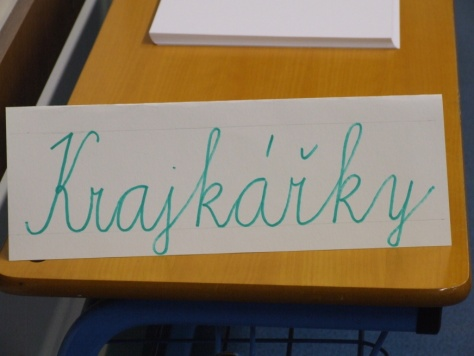 Krajkářky